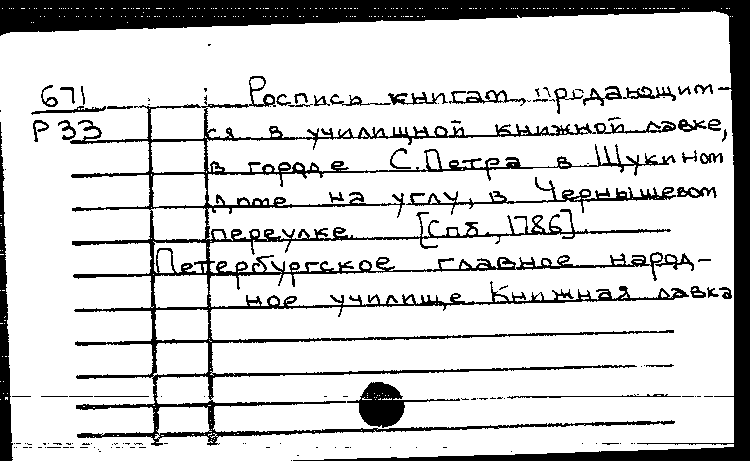 671
Р33
Роспись книгам, продающим-
ся в училищной книжной лавке,
в городе С.Петра в Щукином
доме на углу, в Чернышевом
переулке. [Спб., 1786]
Петербургское главное народ-
ное училище Книжная лавка